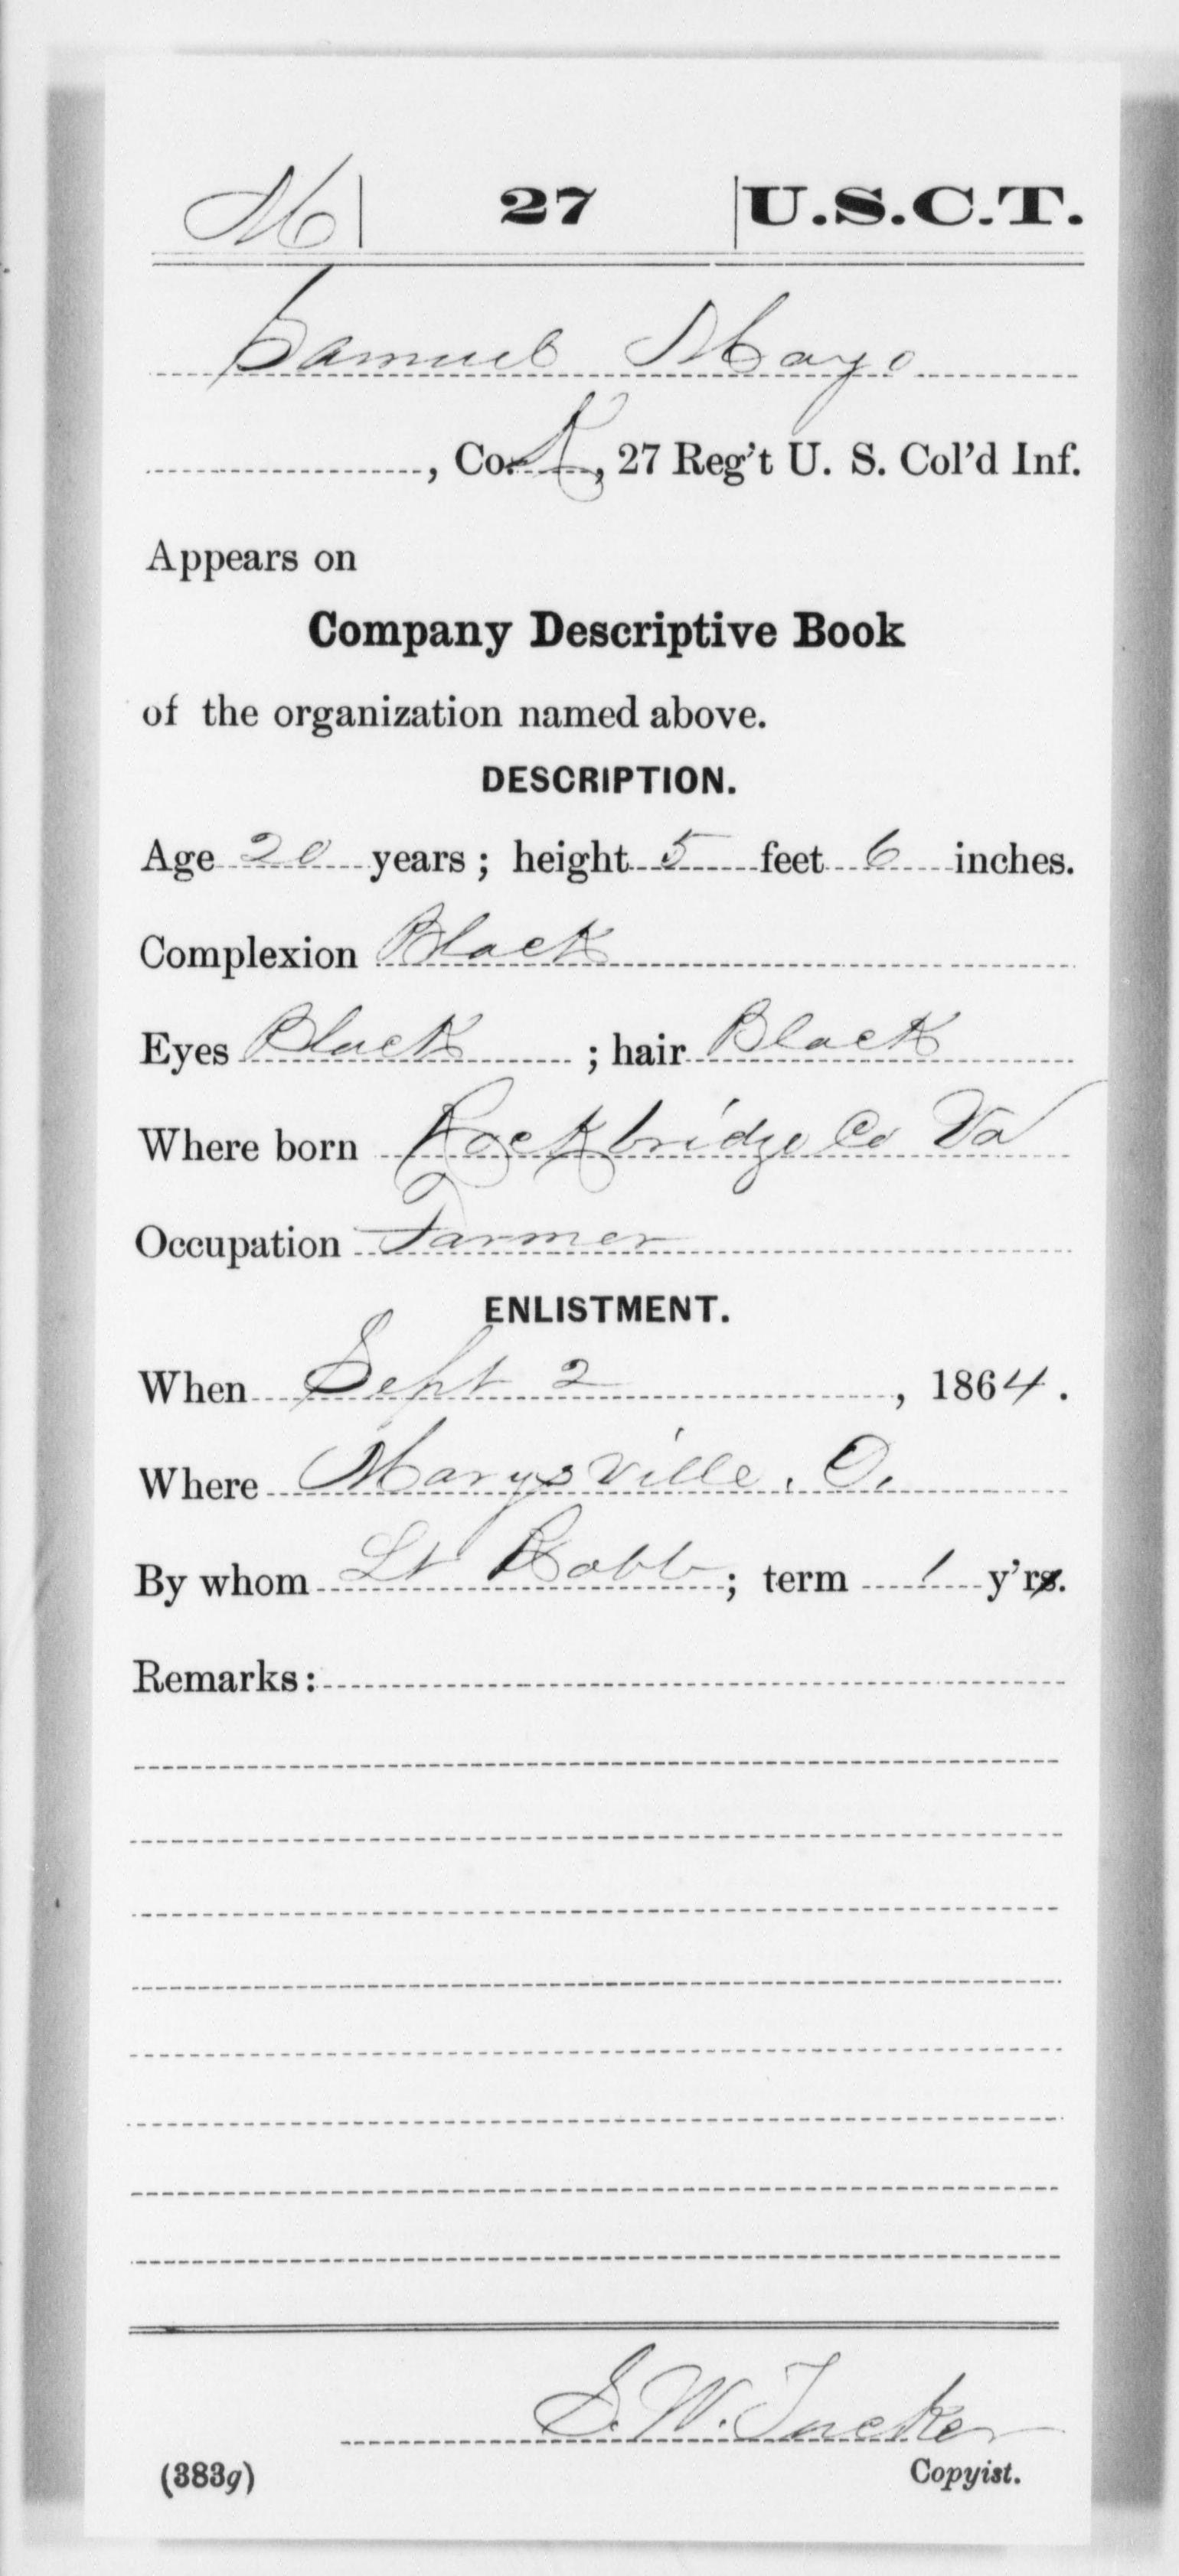 M | 27 | U.S.C.T.
Samuel Mayo
, Co. K, 27 Reg't U. S. Col'd Inf.
Appears on
Company Descriptive Book
of the organization named above.
DESCRIPTION.
Age 20 years; height 5 feet 6 inches.
Complexion Black
Eyes Black ; hair Black
Where born Rockbridge Co Va
Occupation Farmer
ENLISTMENT.
When Sept 2, 1864.
Where Marysville, O.
By whom Lt Robb; term 1 y'rs.
Remarks:
S. W. Tucker
(383g) Copyist.